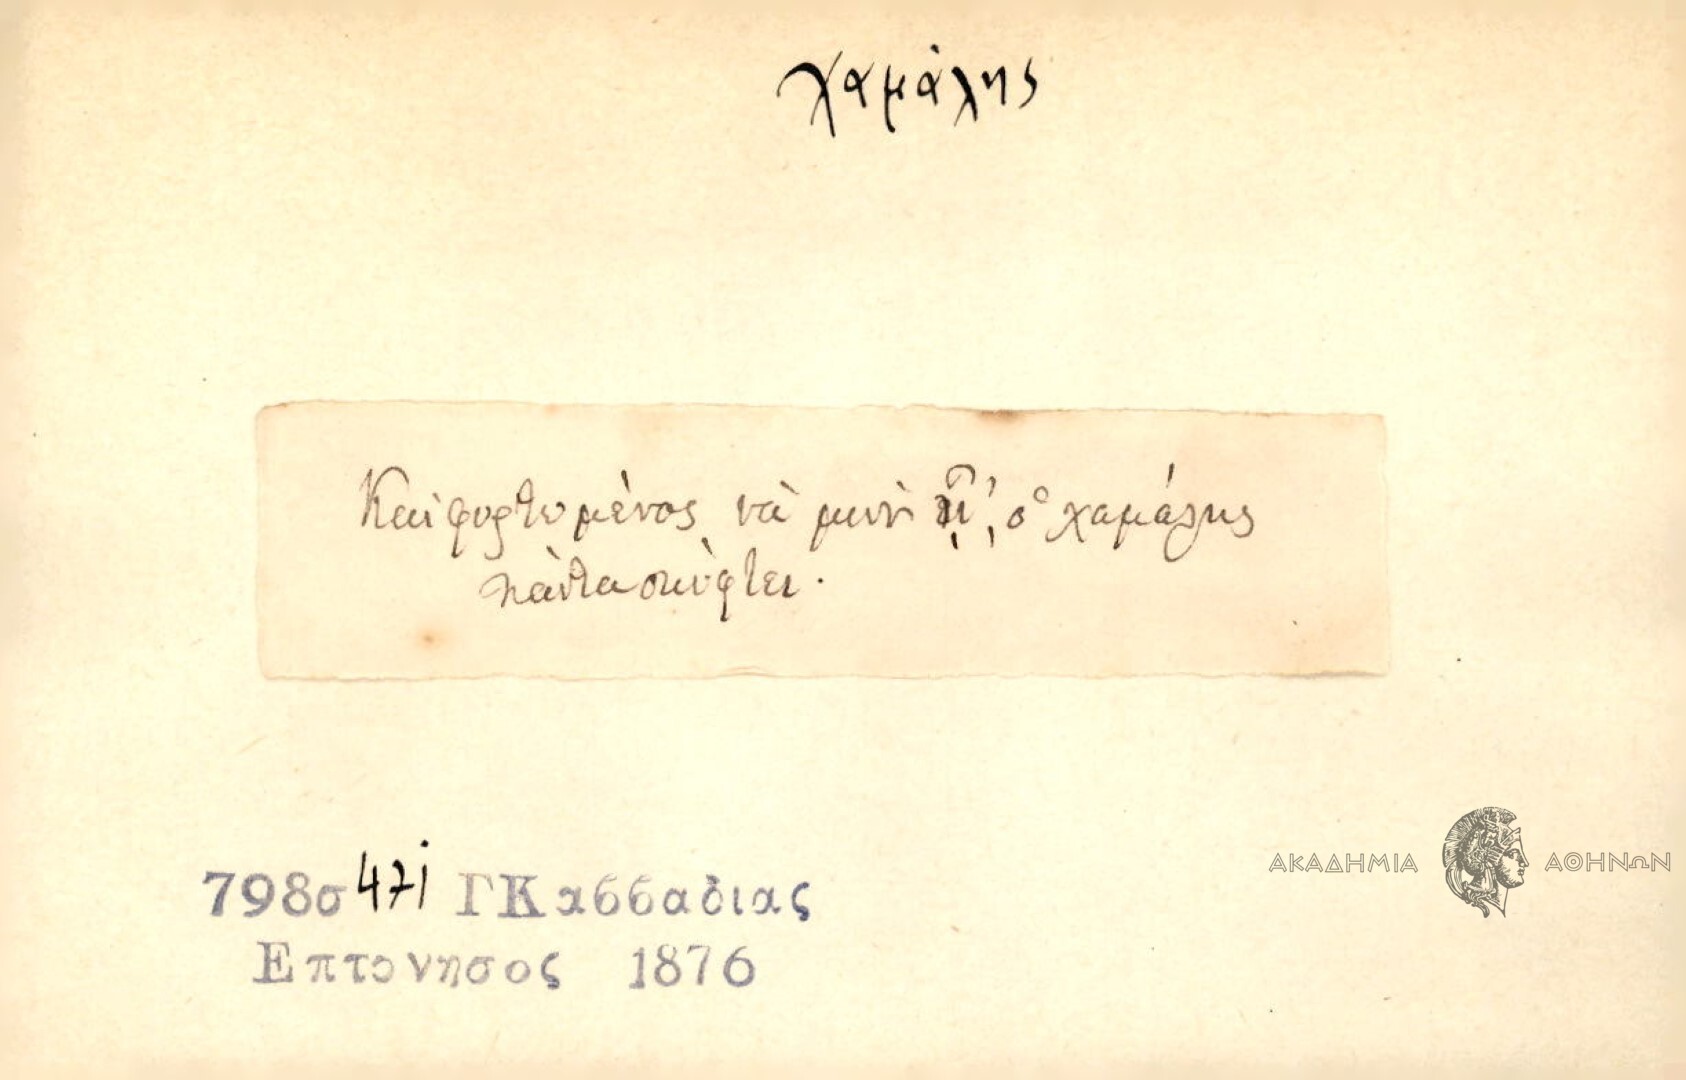 χαμάλης
Και φορτωμένος νὰ μὴν ᾖ, ὁ χαμάλης
πάντα σκύφτει.
798σ 471 ΓΚαββαδιας
Επτονησος 1876
ΑΚΑΔΗΜΙΑ ΑΘΗΝΩΝ